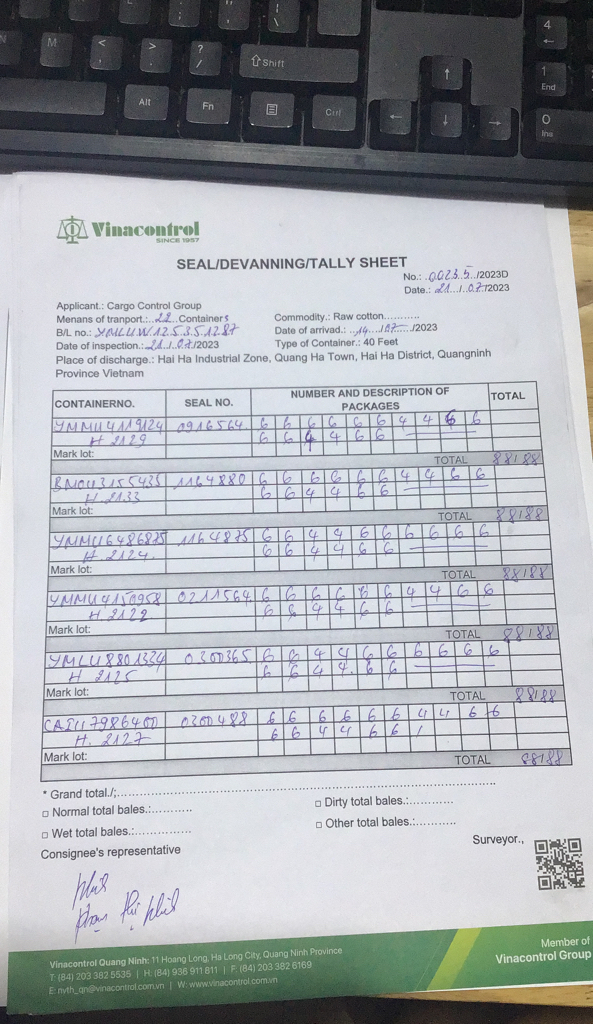 4
1
End
0
Ins
M
<
,
>
.
?
/
Shift
Alt
Fn
Ctrl
Vinacontrol
SINCE 1957
SEAL/DEVANNING/TALLY SHEET
No.: 00235/2023D
Date.: 21/07/2023
Applicant.: Cargo Control Group
Menans of tranport.: 22 Containers Commodity.: Raw cotton...........
B/L no.: YMLUW125351287 Date of arrivad.: 14/07/2023
Date of inspection.: 21/07/2023 Type of Container.: 40 Feet
Place of discharge.: Hai Ha Industrial Zone, Quang Ha Town, Hai Ha District, Quangninh
Province Vietnam
CONTAINERNO. SEAL NO. NUMBER AND DESCRIPTION OF PACKAGES TOTAL
YMMU4119124 0916564 6 6 6 6 6 6 4 4 6 6
H 2129 6 6 4 4 6 6
Mark lot:
TOTAL 88/88
1164880 6 6 6 6 6 6 4 4 6 6
H. 2133 6 6 4 4 6 6
Mark lot:
TOTAL 88/88
YMMU6486875 1164875 6 6 4 4 6 6 6 6 6 6
H 2124. 6 6 4 4 6 6
Mark lot:
TOTAL 88/88
YMMU4150958 0211564 6 6 6 6 6 6 4 4 6 6
H 2122 6 6 4 4 6 6
Mark lot:
TOTAL 88/88
YMLU8801334 0300365 6 6 4 4 6 6 6 6 6 6
H 2125 6 6 4 4. 6 6
Mark lot:
TOTAL 88/88
CAIU7986400 0300488 6 6 6 6 6 6 4 4 6 6
H. 2127 6 6 4 4 6 6
Mark lot:
TOTAL 88/88
* Grand total./;..........................................................
□ Normal total bales.:........... □ Dirty total bales.:...........
□ Wet total bales.:.............. □ Other total bales.:...........
Consignee's representative Surveyor.,
phil
phạm thị phil
Vinacontrol Quang Ninh: 11 Hoang Long, Ha Long City, Quang Ninh Province
T: (84) 203 382 5535 | H: (84) 936 911 811 | F: (84) 203 382 6169
E: nvth_qn@vinacontrol.com.vn | W: www.vinacontrol.com.vn
Member of
Vinacontrol Group